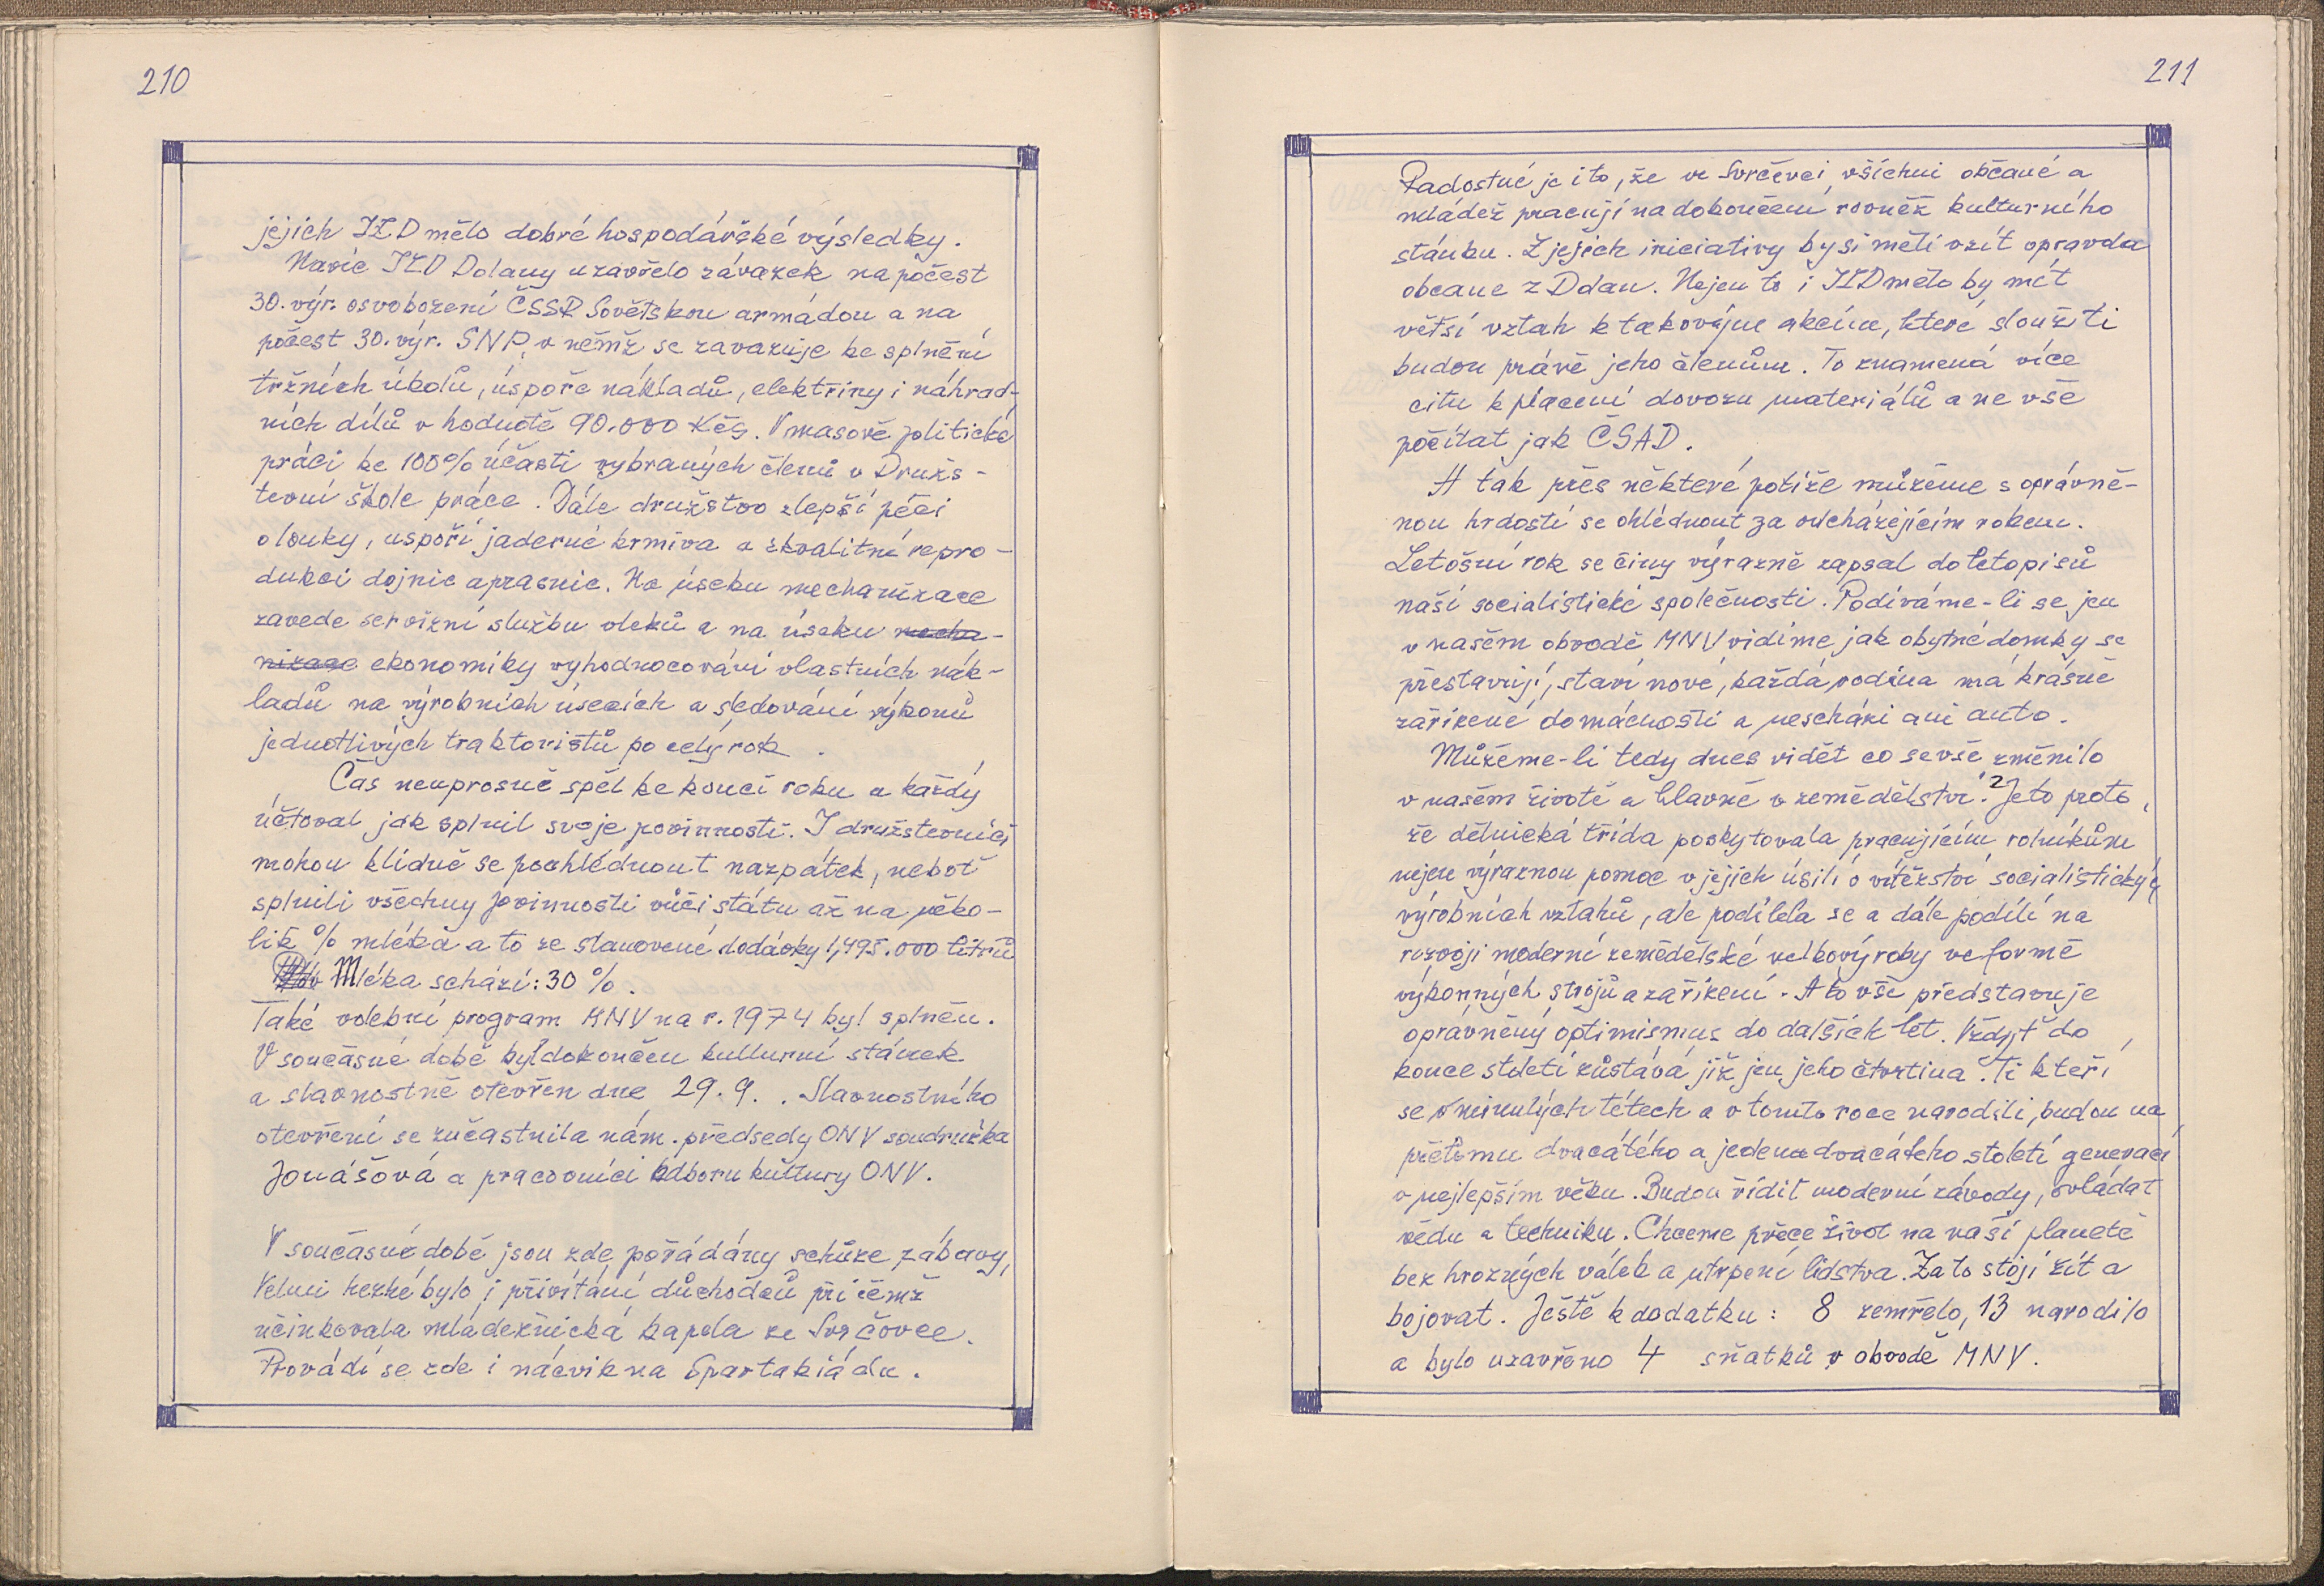 210
jejich JZD mělo dobré hospodářské výsledky.
Navíc JZD Dolany uzavřelo závazek na počest
30. výr. osvobození ČSSR Sovětskou armádou a na
počest 30. výr. SNP, v němž se zavazuje ke splnění
tržních úkolů, úspoře nákladů, elektřiny i náhrad-
ních dílů v hodnotě 90.000 Kčs. V masově politické
práci ke 100% účasti vybraných členů v Družs-
tevní škole práce. Dále družstvo zlepší péči
o louky, uspoří jaderné krmiva a zkvalitní repro-
dukci dojnic a prasnic. Na úseku mechanizace
zavede servizní službu vleků a na úseku mecha-
nizace ekonomiky vyhodnocování vlastních nák-
ladů na výrobních úsecích a sledování výkonů
jednotlivých traktoristů po celý rok.
Čas neuprosně spěl ke konci roku a každý
účtoval jak splnil svoje povinnosti. I družstevníci
mohou klidně se poohlédnout nazpátek, neboť
splnili všechny povinnosti vůči státu až na něko-
lik % mléka a to ze stanovené dodávky 1,495.000 litrů
Mléka schází: 30 %.
Také volební program MNV na r. 1974 byl splněn.
V současné době byl dokončen kulturní stánek
a slavnostně otevřen dne 29.9. . Slavnostního
otevření se zučastnila nám. předsedy ONV soudružka
Jonášová a pracovníci odboru kultury ONV.
V současné době jsou zde pořádány schůze, zábavy,
Velmi hezké bylo i přivítání důchodců při čemž
učinkovala mládežnická kapela ze Svrčovce.
Provádí se zde i nácvik na Spartakiádu.
211
Radostné je i to, že ve Svrčevci všichni občané a
mládež pracují na dokončení rovněž kulturního
stánku. Z jejich iniciativy by si měli vzít opravdu
občane z Dolan. Nejen to i JZD mělo by mít
větší vztah k takovým akcím, které sloužiti
budou právě jeho členům. To znamená více
citu k placení dovozu materiálů a ne vše
počítat jak ČSAD.
A tak přes některé potíže můžeme s oprávně-
nou hrdostí se ohlédnout za odcházejícím rokem.
Letošní rok se činy výrazně zapsal do letopisů
naší socialistické společnosti. Podíváme-li se jen
v našem obvodě MNV vidíme jak obytné domky se
přestavují, staví nové, každá rodina má krásně
zařízené domácnosti a neschází ani auto.
Můžeme-li tedy dnes vidět co se vše změnilo
v našem životě a hlavně v zemědělství.? Je to proto,
že dělnická třída poskytovala pracujícím rolníkům
nejen výraznou pomoc v jejich úsilí o vítězství socialistických
výrobních vztahů, ale podílela se a dále podílí na
rozvoji moderní zemědělské velkovýroby ve formě
výkonných strojů a zařízení. A to vše představuje
oprávněný optimismus do dalších let. Vždyť do
konce století zůstává již jen jeho čtvrtina. Ti kteří
se v minulých létech a v tomto roce narodili, budou na
přelomu dvacátého a jedenadvacátého století generací
v nejlepším věku. Budou řídit moderní závody, ovládat
vědu a techniku. Chceme přece život na naší planetě
bez hrozných válek a utrpení lidstva. Za to stojí žít a
bojovat. Ještě k dodatku: 8 zemřelo, 13 narodilo
a bylo uzavřeno 4 sňatků v obvodě MNV.